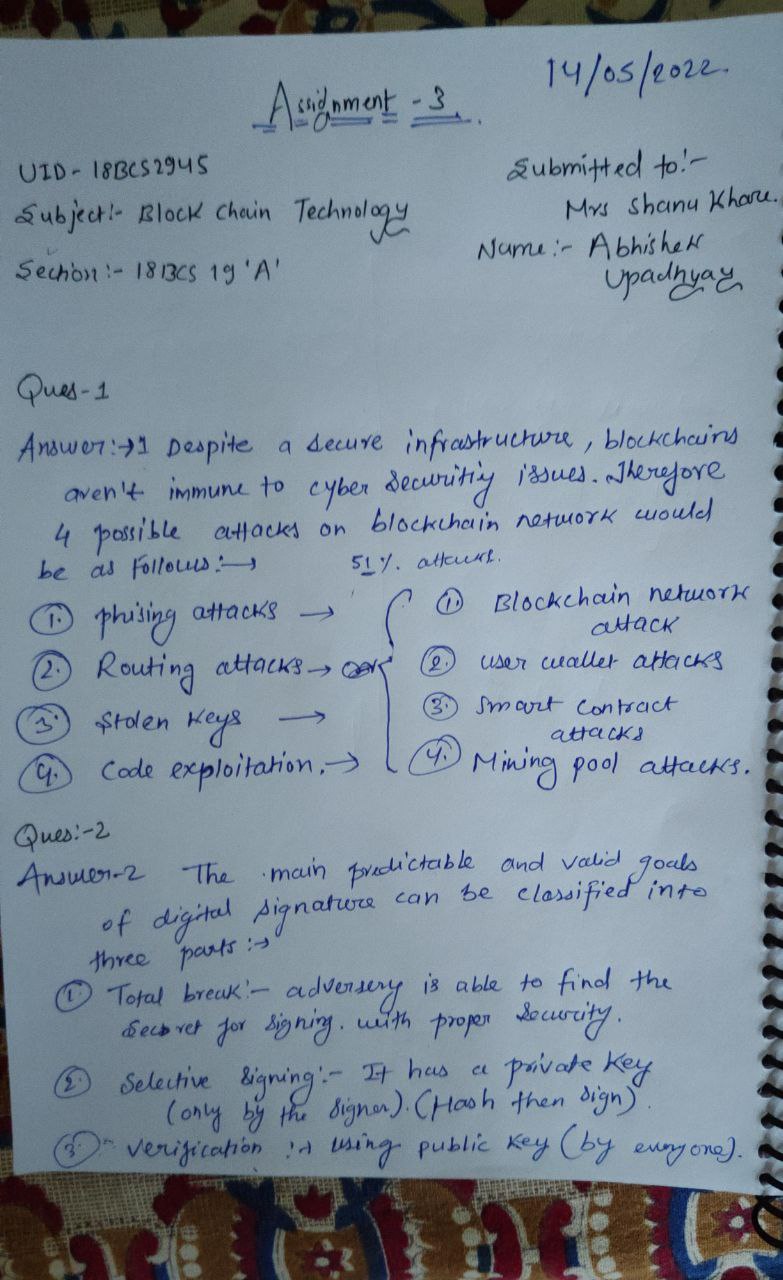 14/05/2022.
Assignment - 3.
UID - 18BCS2945
Submitted to:-
Subject:- Block Chain Technology
Mrs Shanu Khare.
Name:- Abhishek
Section:- 18BCS 19 'A'
Upadhyay
Ques-1
Answer:→1 Despite a secure infrastructure, blockchains
aren't immune to cyber securitiy issues. Therefore
4 possible attacks on blockchain network would
be as follows:→ 51%. attacks.
1. phising attacks →
2. Routing attacks →
3. Stolen keys →
4. Code exploitation. →
1. Blockchain network
attack
2. user wallet attacks
3. Smart contract
attacks
4. Mining pool attacks.
Ques:-2
Answer-2 The main predictable and valid goals
of digital signature can be classified into
three parts:→
1. Total break:- adversery is able to find the
for signing. with proper security.
2. Selective signing:- It has a private key
(only by the signer). (Hash then sign).
3. verification :→ using public key (by everyone).